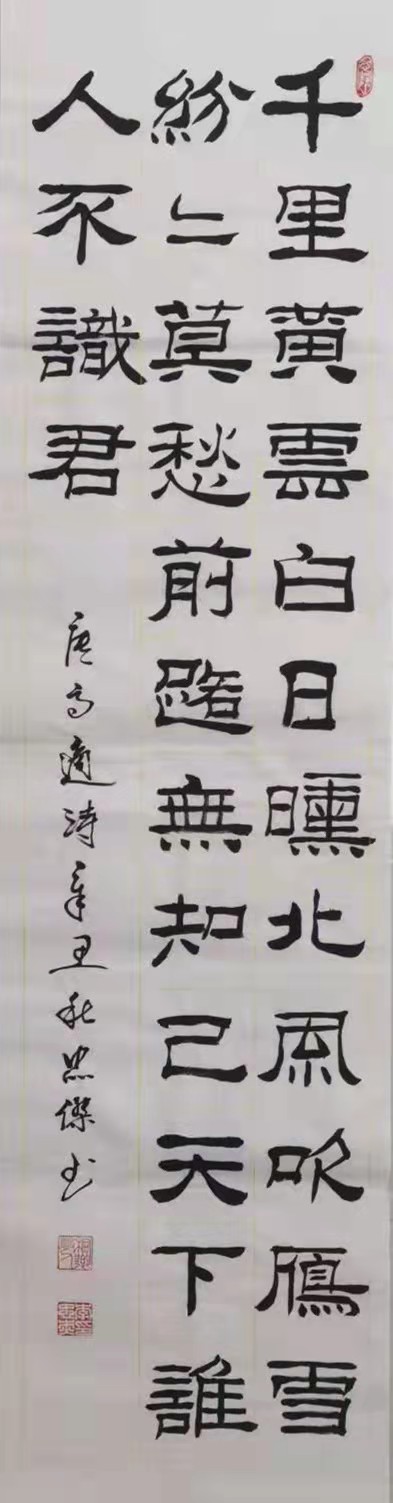 千里黃雲白日曛北風吹鴈雪
紛〻莫愁前路無知己天下誰
人不識君
唐高適詩辛丑秋忠傑书